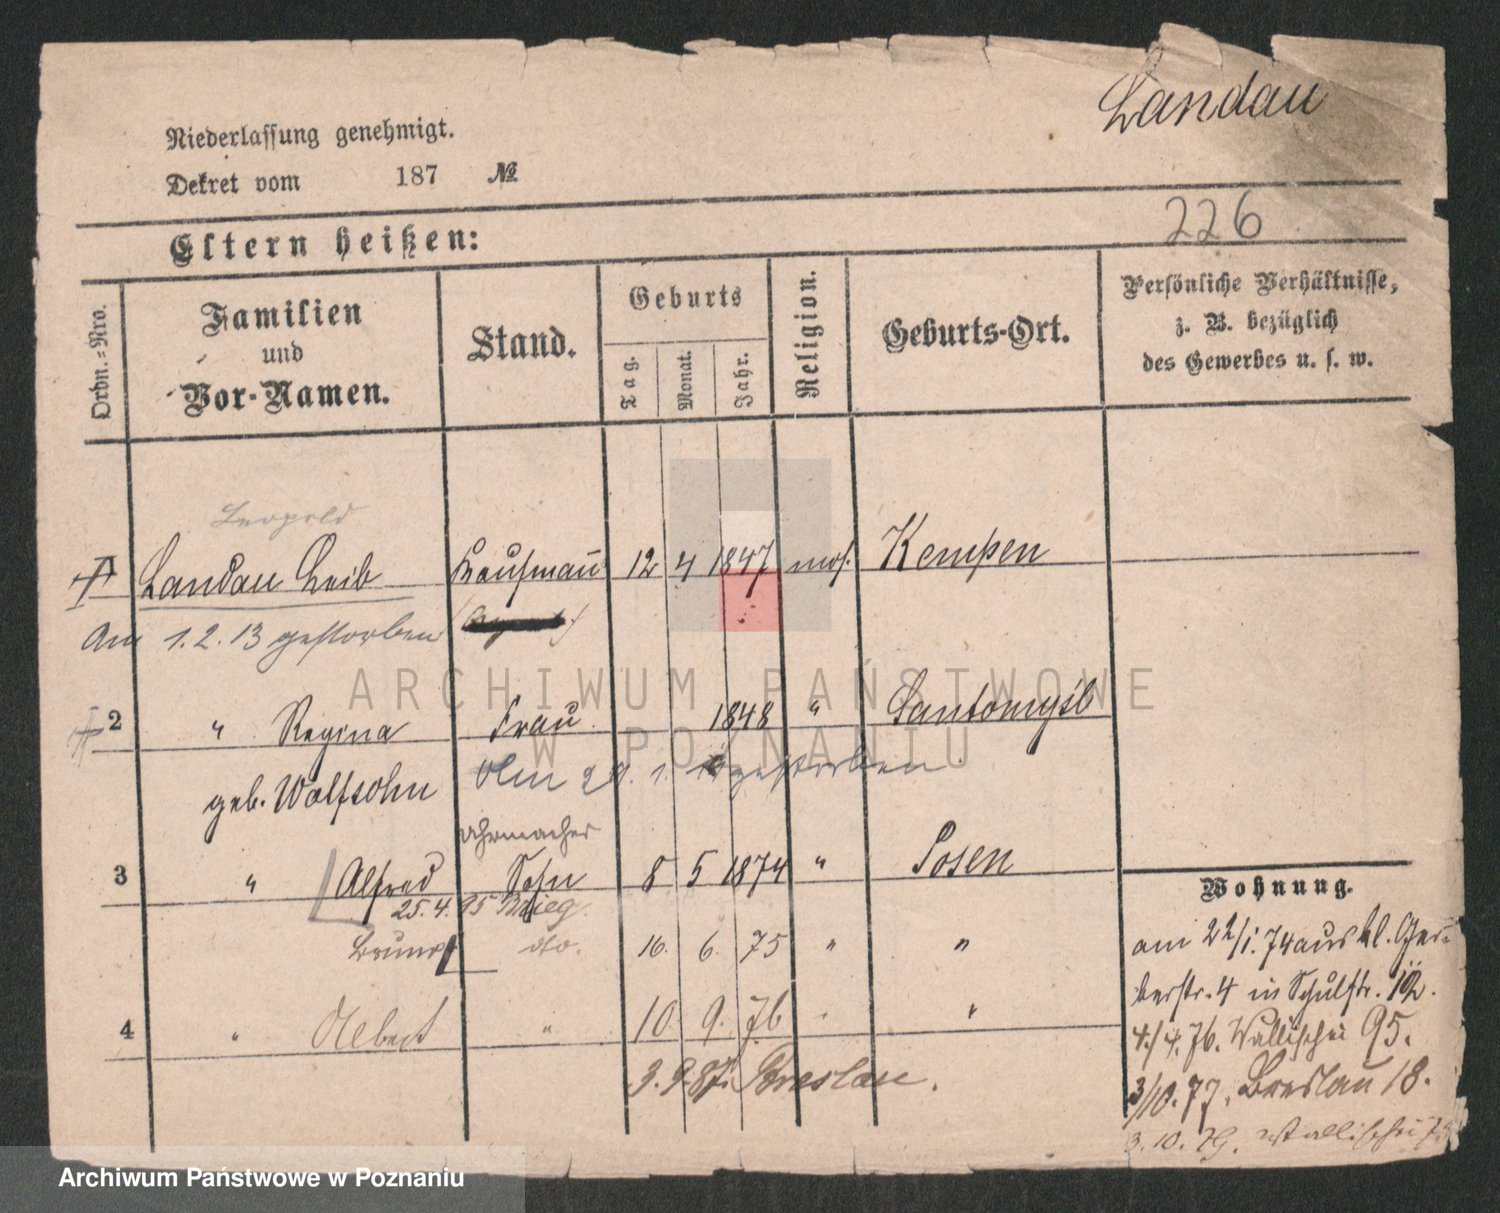 Landau
Niederlassung genehmigt.
Dekret vom 187 №
226
Eltern heißen:
Ordn.-Nro.
Familien und Vor-Namen.
Stand.
Geburts
Tag. Monat. Jahr.
Religion.
Geburts-Ort.
Persönliche Verhältnisse,
z. B. bezüglich
des Gewerbes u. s. w.
Leopold
1 Landau Leib Kaufmann 12 4 1847 mos. Kempen
Am 1.2.13 gestorben
2 " Regina Frau 1848 " Santomysl
geb. Wolfsohn
Am 1. gestorben
Uhrmacher
3 " Alfred Sohn 8 5 1874 " Posen
25.4.95 Brieg
Bruno do. 16. 6. 75 " "
4 " Albert " 10. 9. 76 " "
3.9.87. Breslau.
Wohnung.
am 22/1.74 aus kl. Ger-
berstr. 4 in Schulstr. 12.
4./4.76. Wallischei 95.
3/10.77. Breslau 18.
3.10.79. Wallischei
ARCHIWUM PAŃSTWOWE
W POZNANIU
Archiwum Państwowe w Poznaniu